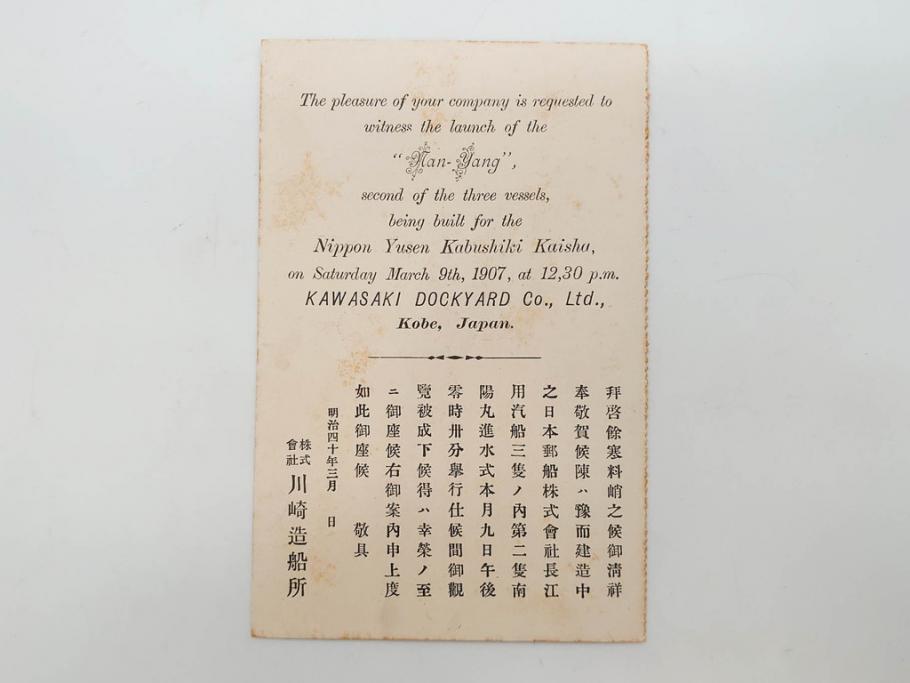 The pleasure of your company is requested to
witness the launch of the
"Nan-Yang",
second of the three vessels,
being built for the
Nippon Yusen Kabushiki Kaisha,
on Saturday March 9th, 1907, at 12,30 p.m.
KAWASAKI DOCKYARD Co., Ltd.,
Kobe, Japan.
拜啓餘寒料峭之候御淸祥
奉敬賀候陳ハ豫而建造中
之日本郵船株式會社長江
用汽船三隻ノ內第二隻南
陽丸進水式本月九日午後
零時卅分擧行仕候間御觀
覽被成下候得ハ幸榮ノ至
ニ御座候右御案內申上度
如此御座候 敬具
明治四十年三月 日
株式會社川崎造船所